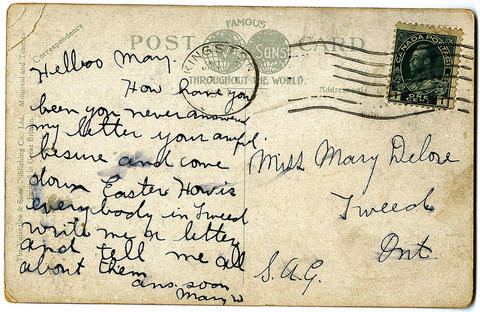 FAMOUS
POST CARD
SONS
THROUGHOUT THE WORLD.
Correspondence
KINGSTON
CANADA POSTAGE
1 CENT 1
Helloo May.
How have you
been you never answered
my letter your awful.
besure and come
down Easter Howis
everybody in Tweed
write me a letter
and tell me all
about them
ans. soon
Mary W
Miss Mary Delore
Tweed
Ont
S.A.G.
& Sons, Publishing Co., Ltd., Montreal and Toronto
in Great Britain.